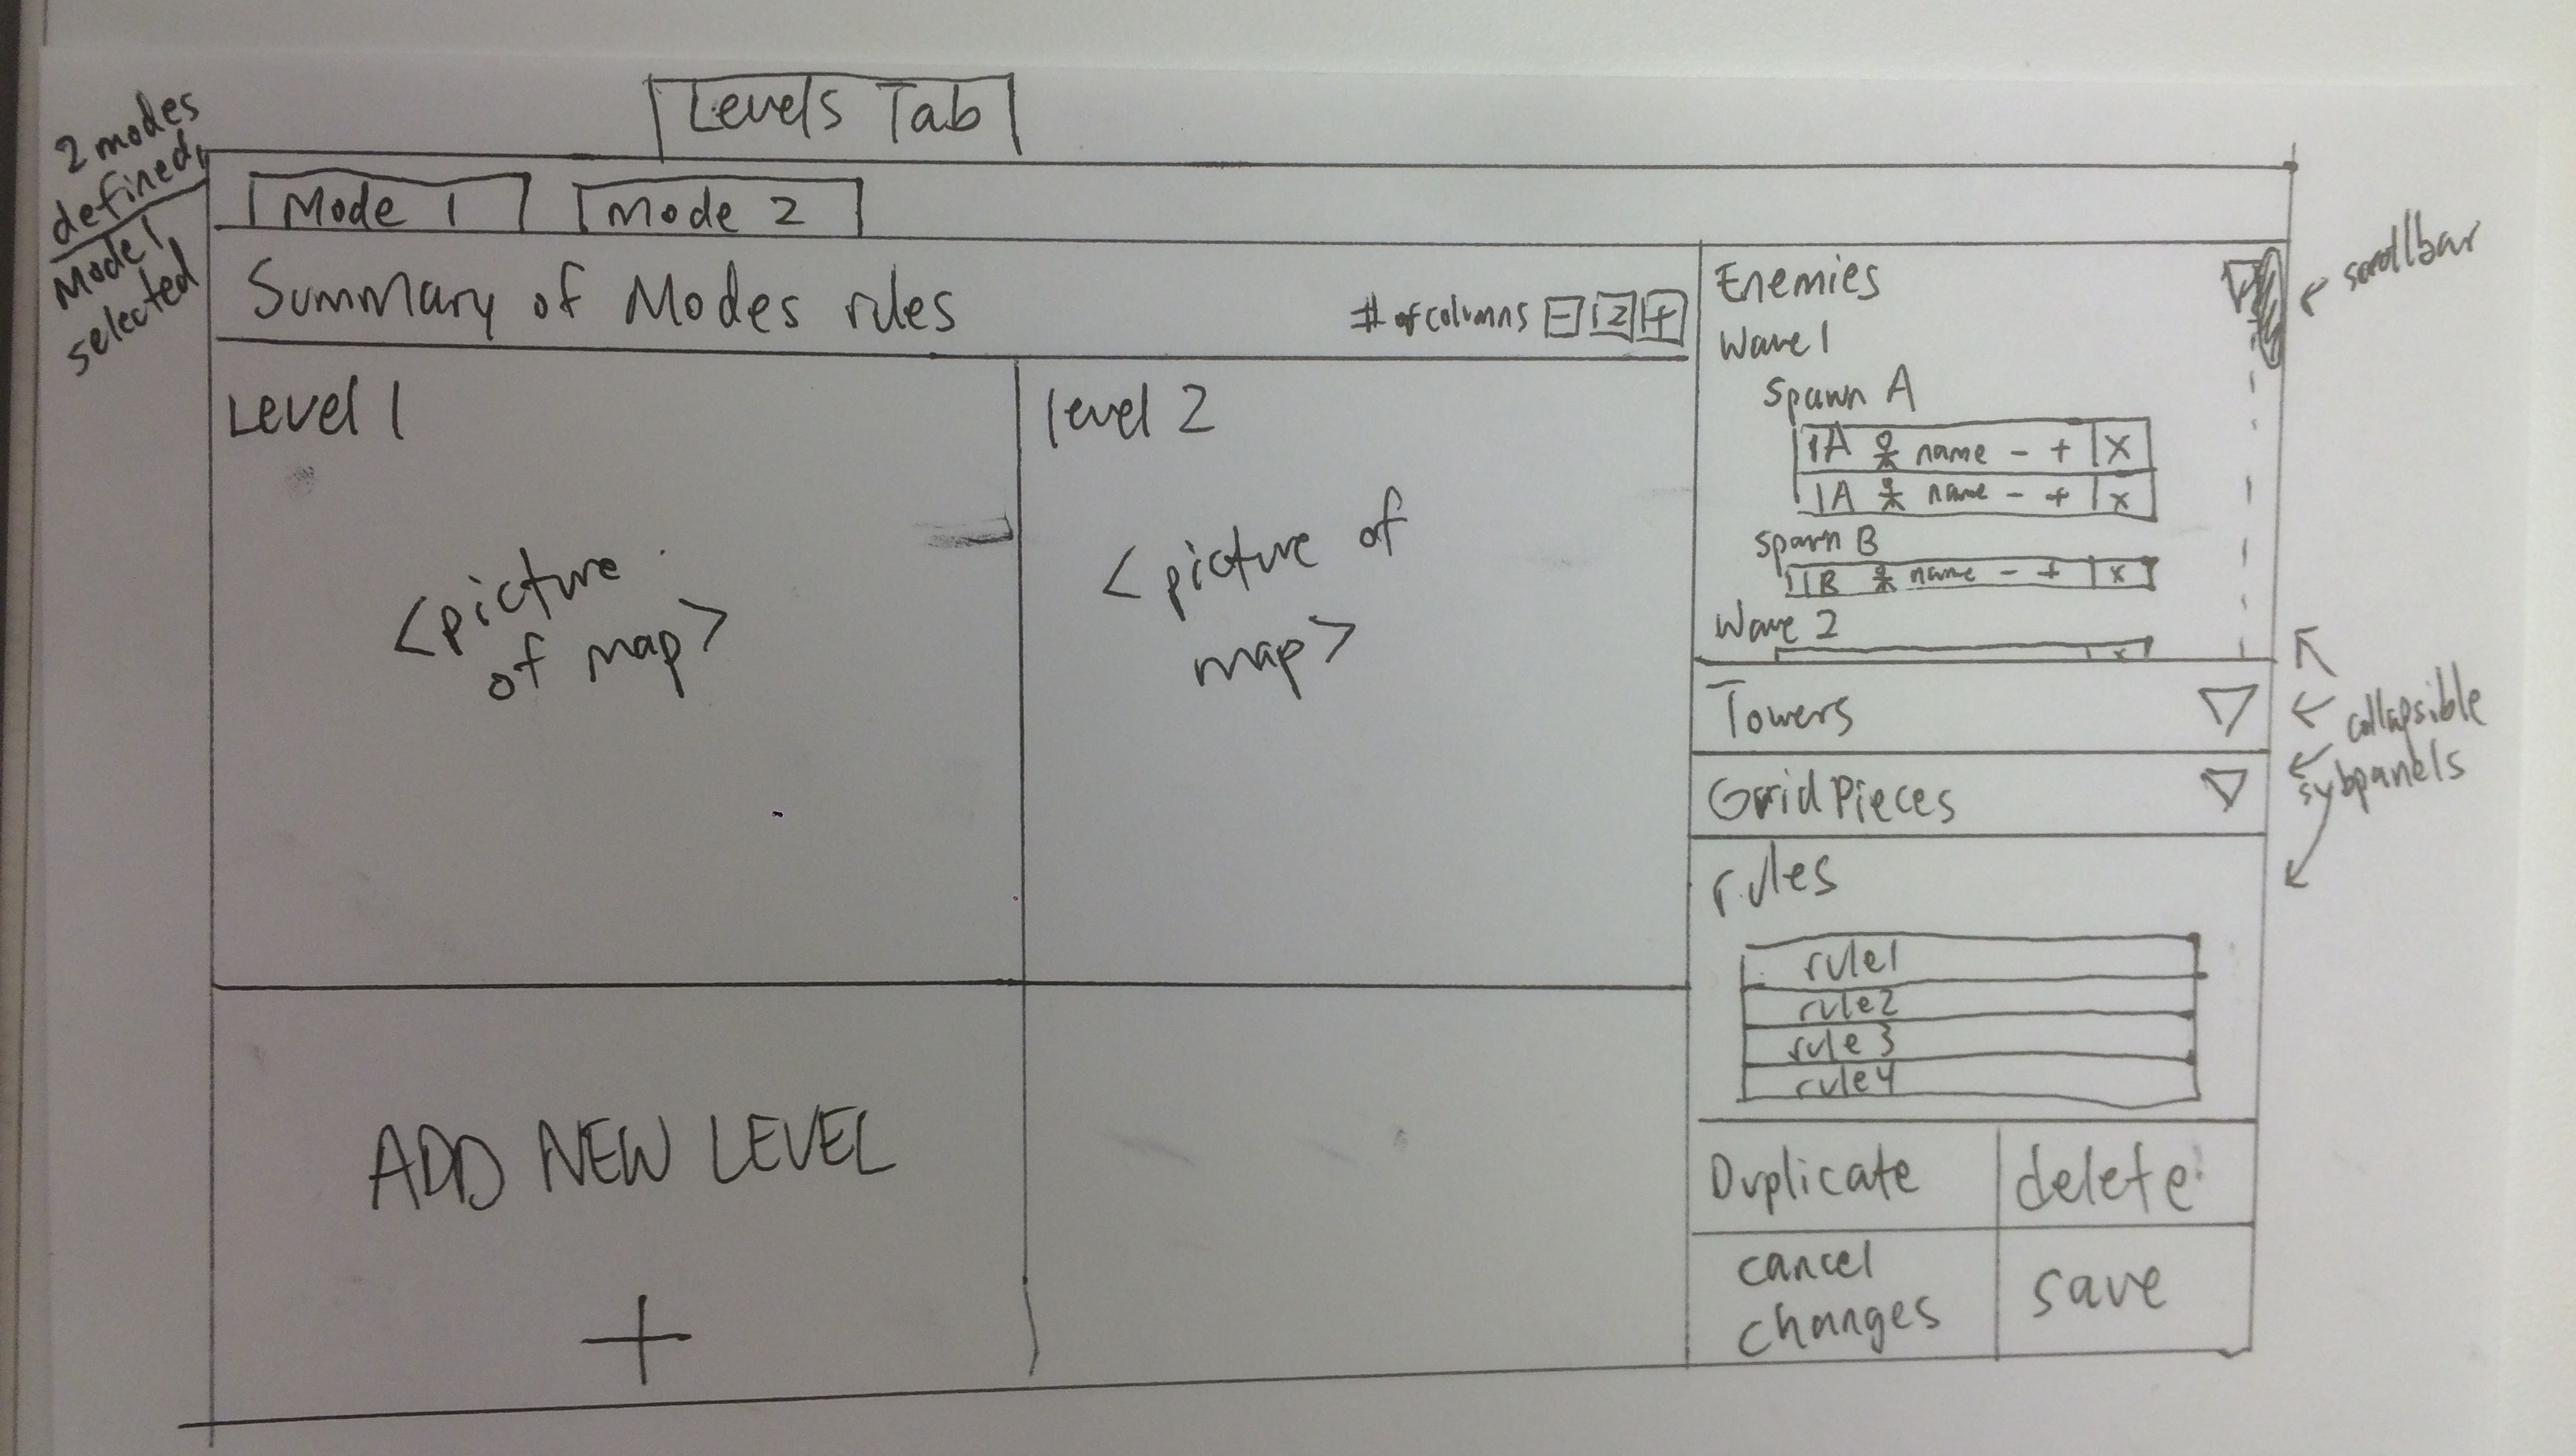 Levels Tab
2 modes
defined,
Mode 1
selected
Mode 1
Mode 2
Summary of Modes rules
# of columns - 2 +
Level 1
<picture
of map>
level 2
<picture of
map>
ADD NEW LEVEL
+
Enemies
Wave 1
Spawn A
1A name - + x
1A name - + x
Spawn B
1B name - + x
Wave 2
x
Towers
Grid Pieces
rules
rule1
rule2
rule 3
rule4
Duplicate
delete
cancel
changes
save
← scrollbar
collapsible
subpanels